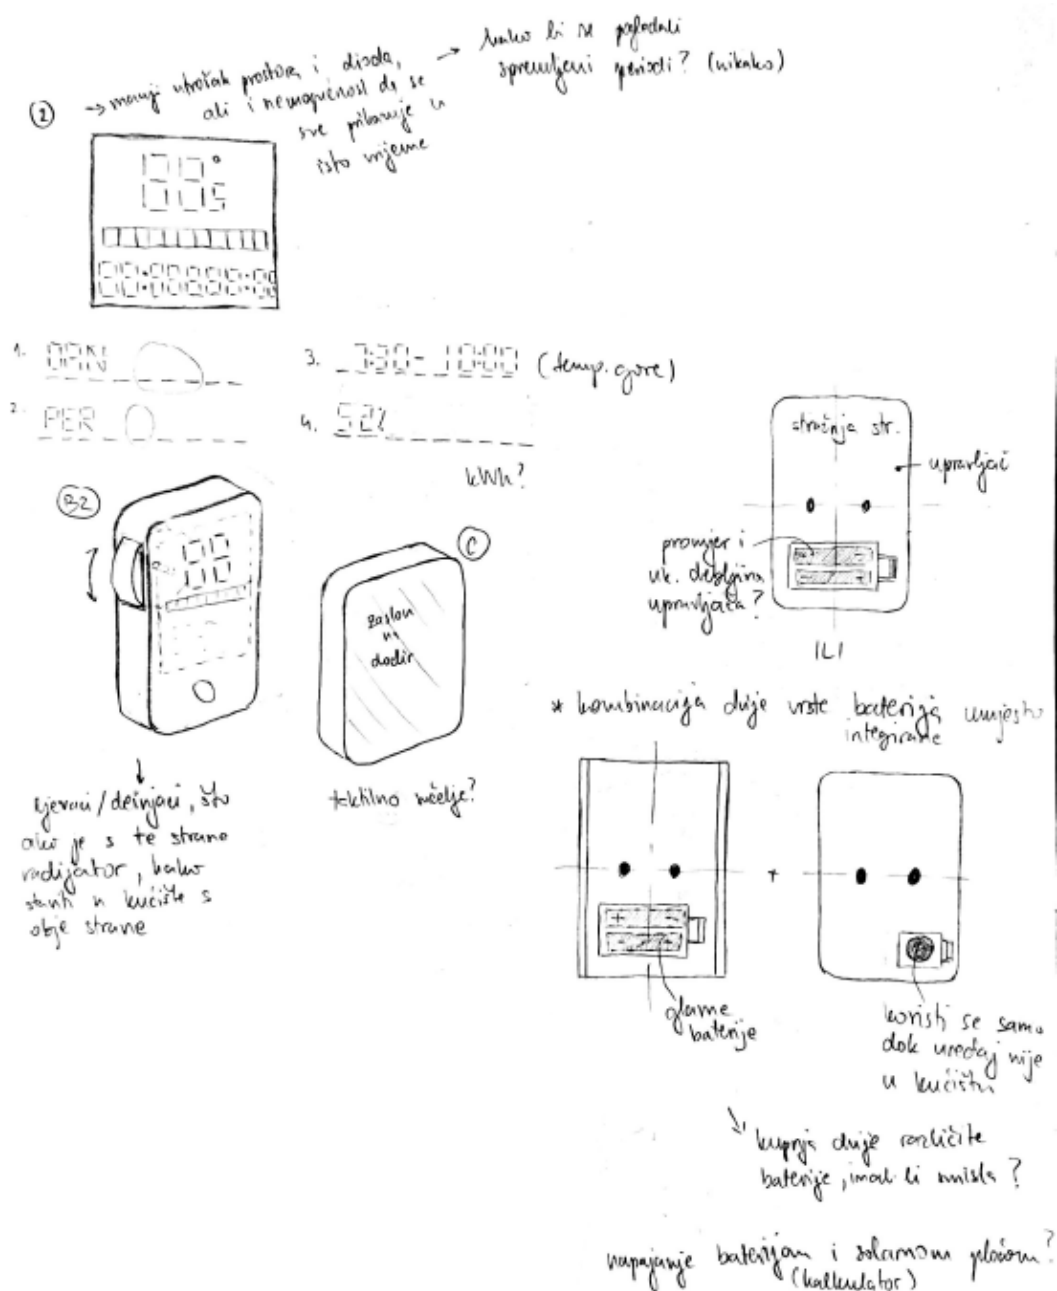 kako bi se pogledali
spremljeni periodi? (nikako)
② → manji utrošak prostora i dioda,
ali i nemogućnost da se
sve prikazuje u
isto vrijeme
88°
5
88:88888:88
1. DAN
2. PER
3. 7:30-10:00 (temp. gore)
4. 52%
kWh?
B2
C
zaslon
na
dodir
taktilno sučelje?
ljevaci/dešnjaci, što
ako je s te strane
radijator, kako
staviti u kućište s
obje strane
stražnja str.
upravljač
promjer i
uk. debljina
upravljača?
ILI
* kombinacija dvije vrste baterija umjesto
integrirane
+
glavne
baterije
koristi se samo
dok uređaj nije
u kućištu
kupnja dvije različite
baterije, ima li smisla?
napajanje baterijom i solarnom pločom?
(kalkulator)